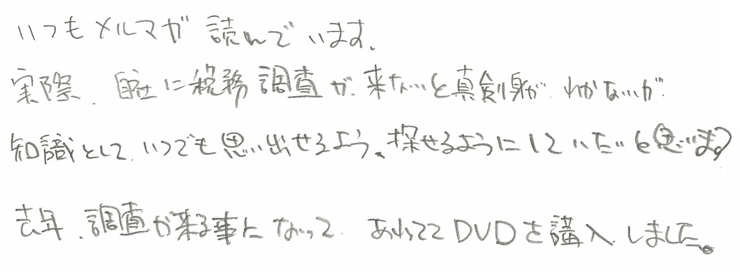 いつもメルマガ 読んでいます。
実際、自社に税務調査が、来ないと真剣身が わかないが
知識として、いつでも思い出せるよう、探せるようにしていたいと思います
去年、調査が来る事になって あわててDVDを購入しました。